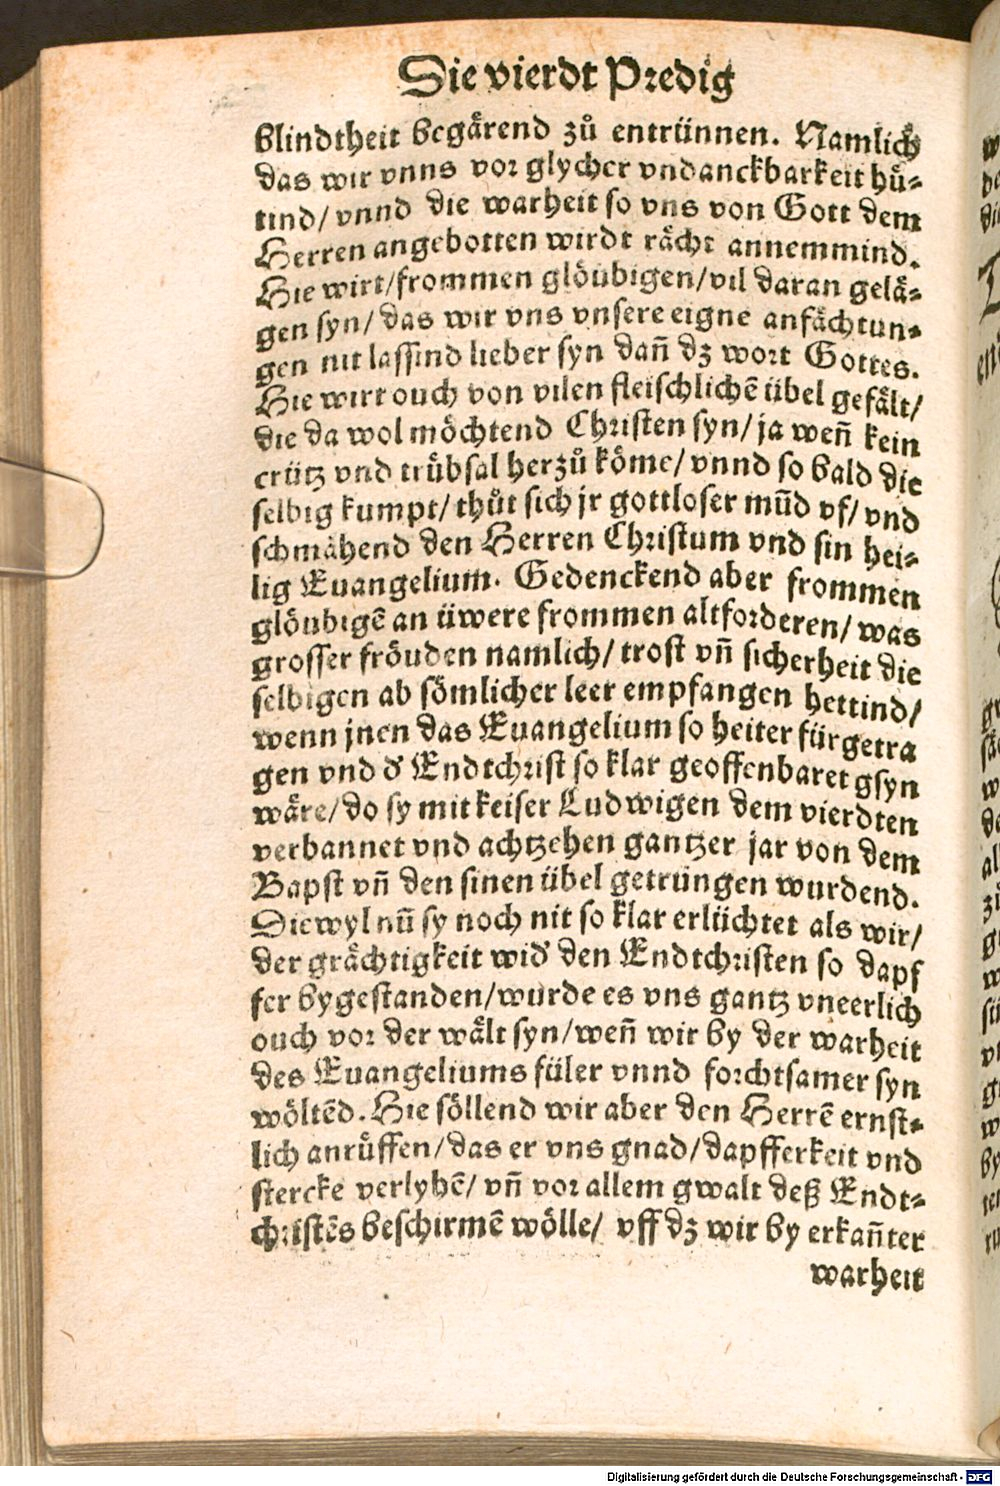 Die vierdt Predig
blindtheit begärend zů entrünnen. Namlich
das wir vnns vor glycher vndanckbarkeit hü⸗
tind/ vnnd die warheit so vns von Gott dem
Herren angebotten wirdt rächt annemmind.
Hie wirt/frommen glöubigen/vil daran gelä⸗
gen syn/ das wir vns vnsere eigne anfächtun⸗
gen nit lassind lieber syn dañ dz wort Gottes.
Hie wirt ouch von vilen fleischlichē übel gefält/
die da wol möchtend Christen syn/ ja weñ kein
crütz vnd trübsal herzů köme/ vnnd so bald die
selbig kumpt/ thůt sich jr gottloser mūd vf/ vnd
schmähend den Herren Christum vnd sin hei⸗
lig Euangelium. Gedenckend aber frommen
glöubigē an üwere frommen altforderen/ was
grosser fröuden namlich/ trost vñ sicherheit die
selbigen ab sömlicher leer empfangen hettind/
wenn jnen das Euangelium so heiter fürgetra
gen vnd d' Endtchrist so klar geoffenbaret gsyn
wäre/ do sy mit keiser Ludwigen dem vierdten
verbannet vnd achtzehen gantzer jar von dem
Bapst vñ den sinen übel getrungen wurdend.
Diewyl nū sy noch nit so klar erlüchtet als wir/
der grächtigkeit wid' den Endtchristen so dapf
fer bygestanden/wurde es vns gantz vneerlich
ouch vor der wält syn/weñ wir by der warheit
des Euangeliums füler vnnd forchtsamer syn
wöltēd. Hie söllend wir aber den Herrē ernst⸗
lich anrüffen/das er vns gnad/dapfferkeit vnd
stercke verlyhē/ vñ vor allem gwalt deß Endt⸗
christēs beschirmē wölle/ vff dz wir by erkañter
warheit
Digitalisierung gefördert durch die Deutsche Forschungsgemeinschaft - DFG